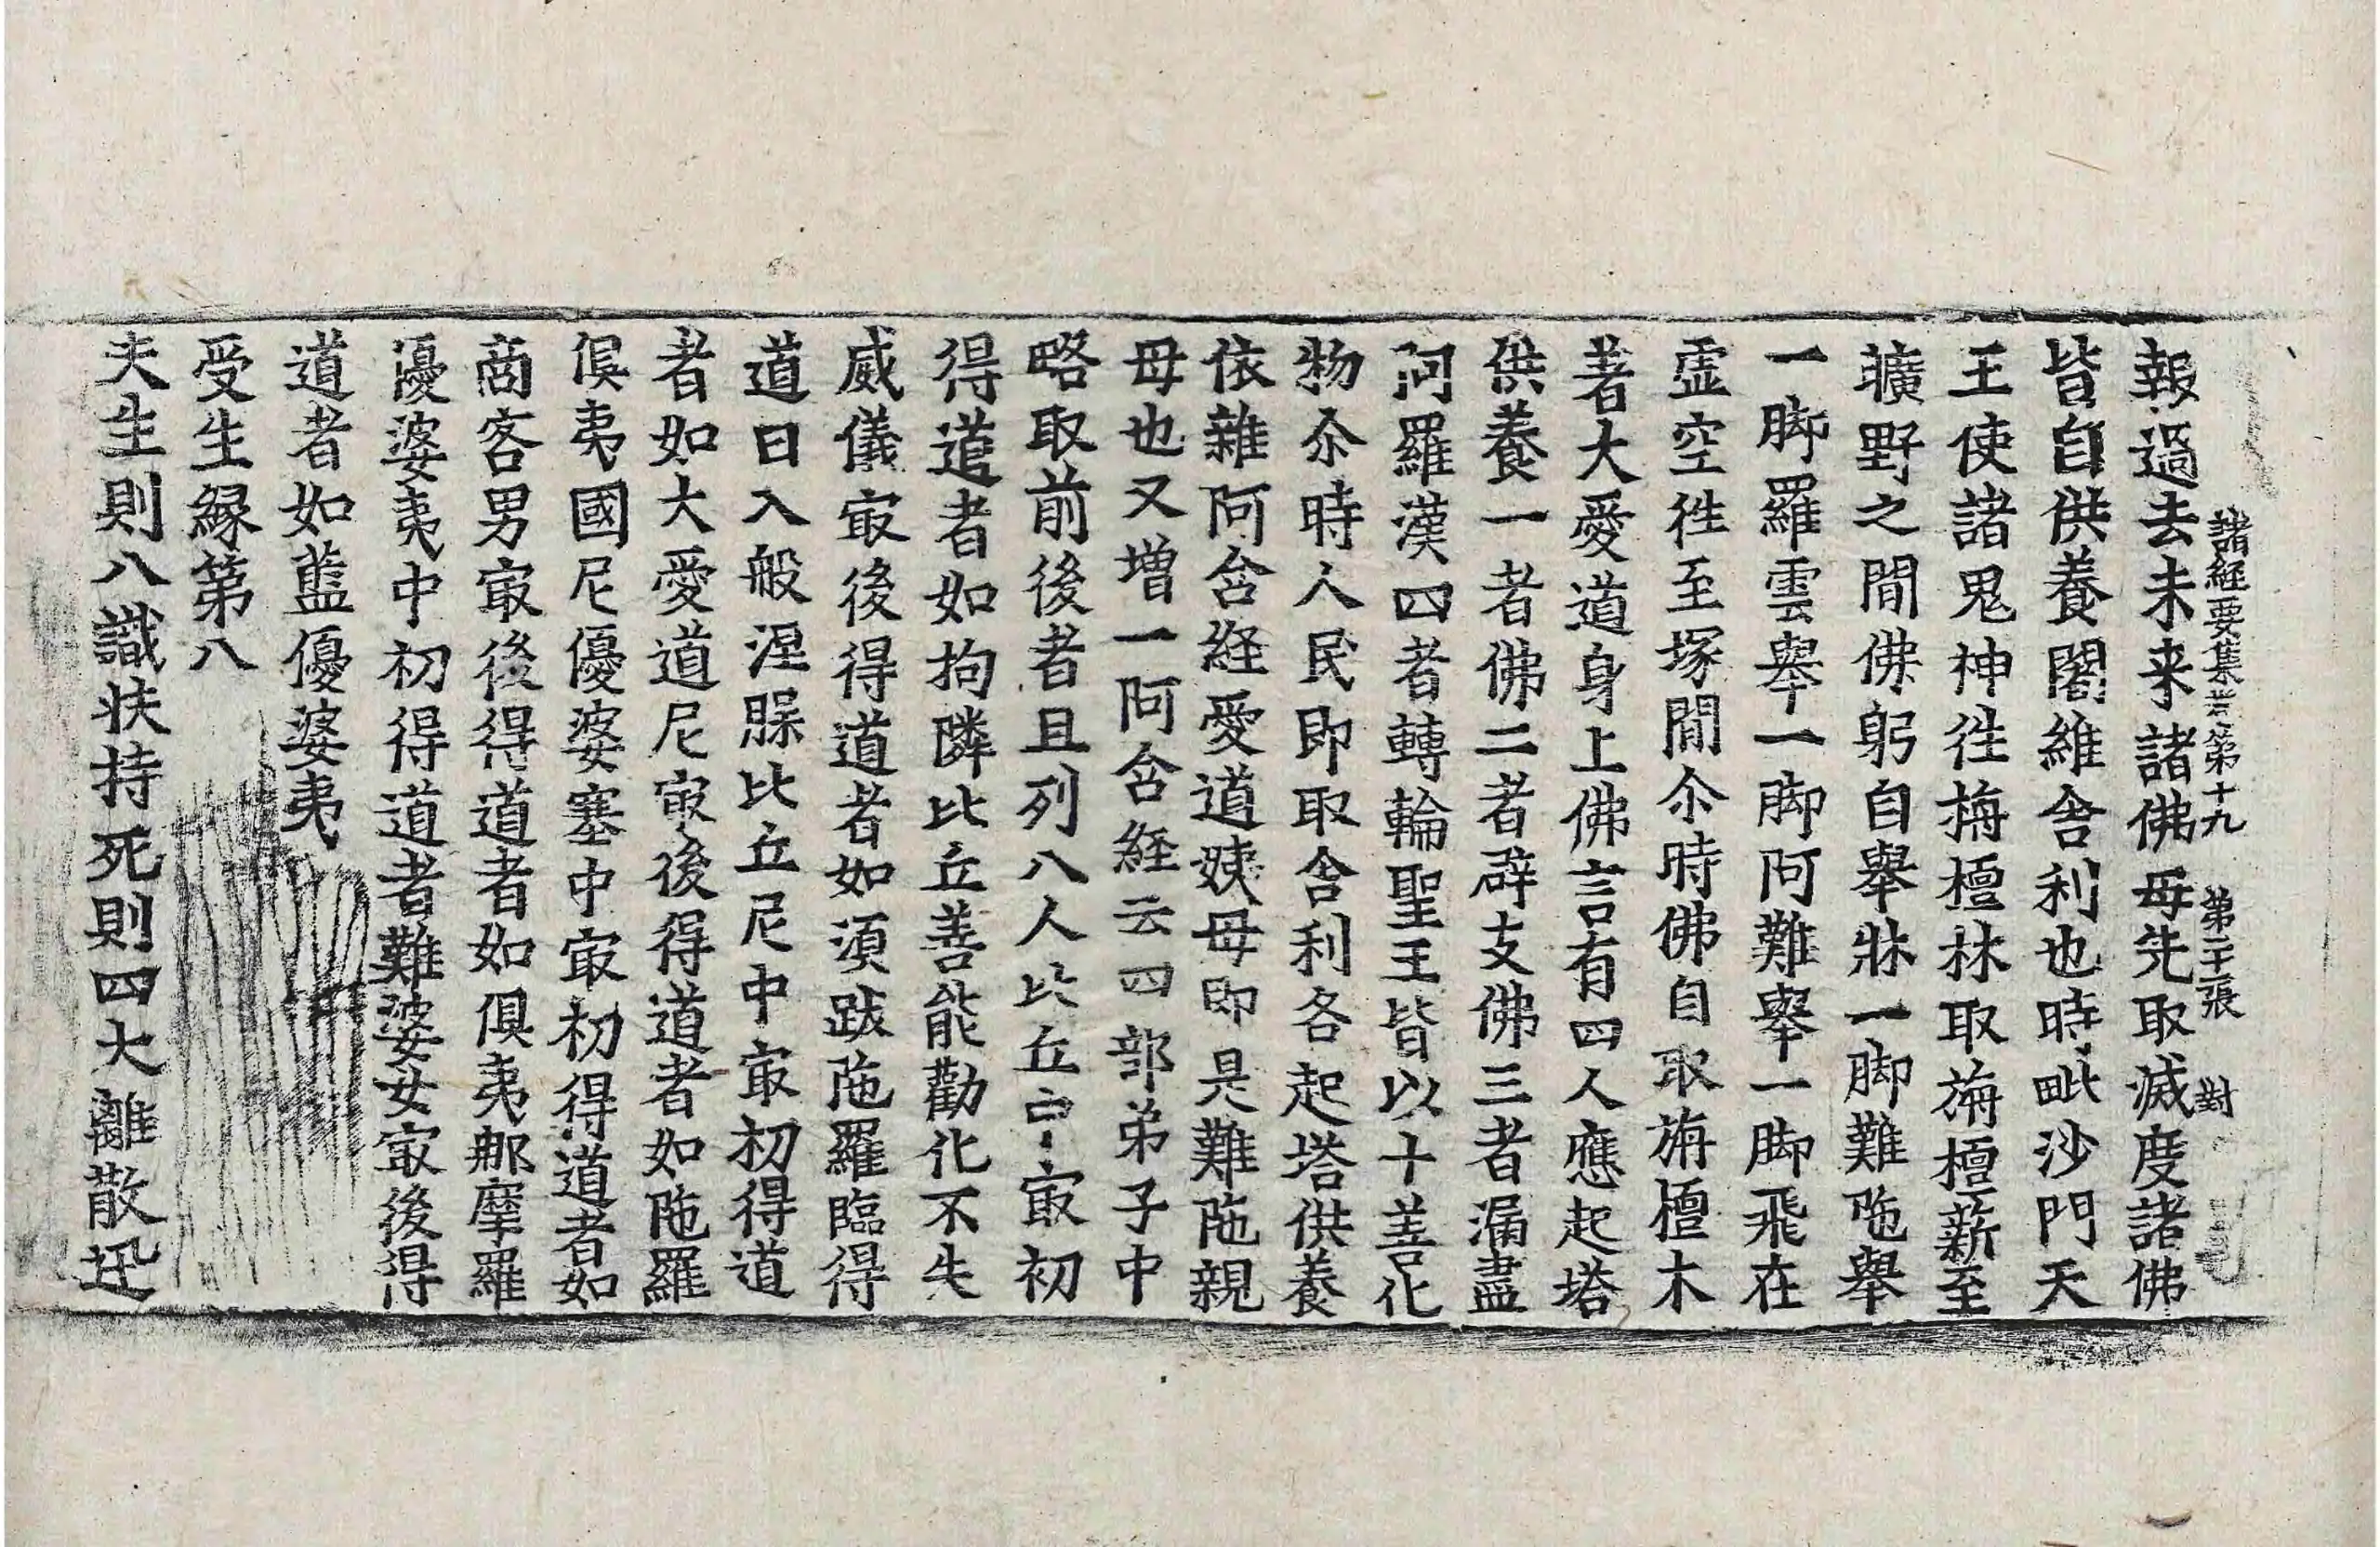 諸経要集卷第十九 第二十張 對
報過去未来諸佛母先取滅度諸佛
皆自供養闍維舎利也時毗沙門天
王使諸鬼神往栴檀林取旃檀薪至
曠野之閒佛躬自舉牀一脚難陁舉
一脚羅雲舉一脚阿難舉一脚飛在
虛空往至塚閒尒時佛自取旃檀木
著大愛道身上佛言有四人應起塔
供養一者佛二者辟支佛三者漏盡
阿羅漢四者轉輪聖王皆以十善化
物尒時人民即取舎利各起塔供養
依雜阿含経愛道姨母即是難陁親
母也又增一阿含経云四部弟子中
略取前後者且列八人比丘中㝡初
得道者如拘隣比丘善能勸化不失
威儀㝡後得道者如須跋陁羅臨得
道日入般涅槃比丘尼中㝡初得道
者如大愛道尼㝡後得道者如陁羅
俱夷國尼優婆塞中㝡初得道者如
商客男㝡後得道者如俱夷那摩羅
優婆夷中初得道者難婆女㝡後得
道者如藍優婆夷
受生縁第八
夫生則八識扶持死則四大離散迅